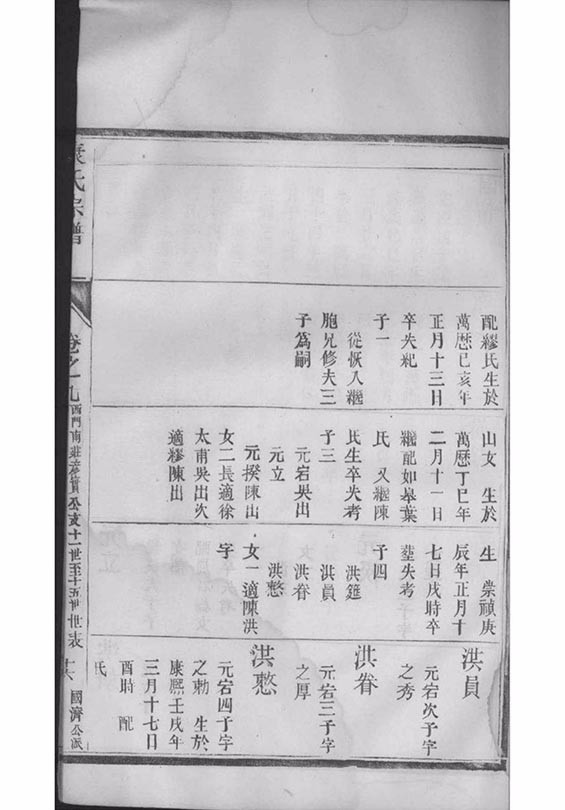 配繆氏生於
萬歷己亥年
正月十三日
卒失紀
子一
從恢入繼
胞兄修夫三
子爲嗣
山女 生於
萬歷丁巳年
二月十一日
繼配如皋葉
氏 又繼陳
氏生卒失考
子三
元宕吳出
元立
元揆陳出
女二長適徐
太甫吳出次
適繆陳出
生 崇禎庚
辰年正月十
七日戌時卒
葬失考
子四
洪筵
洪員
洪眷
洪憗
女一適陳洪
字
洪員
元宕次子字
之秀
洪眷
元宕三子字
之厚
洪憗
元宕四子字
之勑 生於
康熙壬戌年
三月十七日
酉時 配
氏
氏宗譜
卷之十九
西門南莊彥質公支十一世至十五世世表
國濟公派